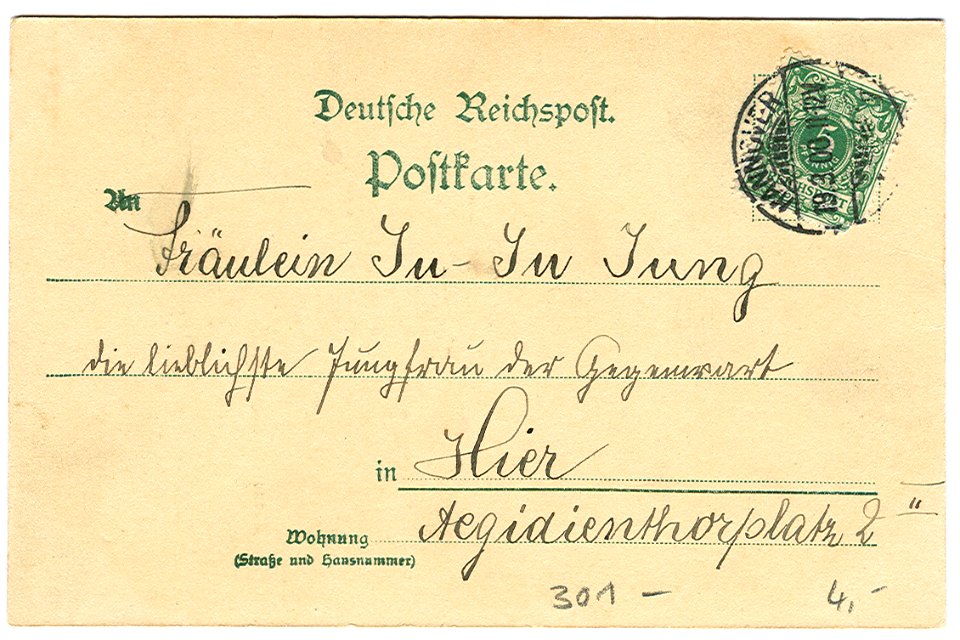 Deutsche Reichspost.
Postkarte.
An
Fräulein Ju-Ju Jung
die lieblichste Jungfrau der Gegenwart
in Hier
Aegidienthorplatz 2 II
Wohnung
(Straße und Hausnummer)
301 — 4,-
HANNOVER
19.3.00. 11-12V.
5